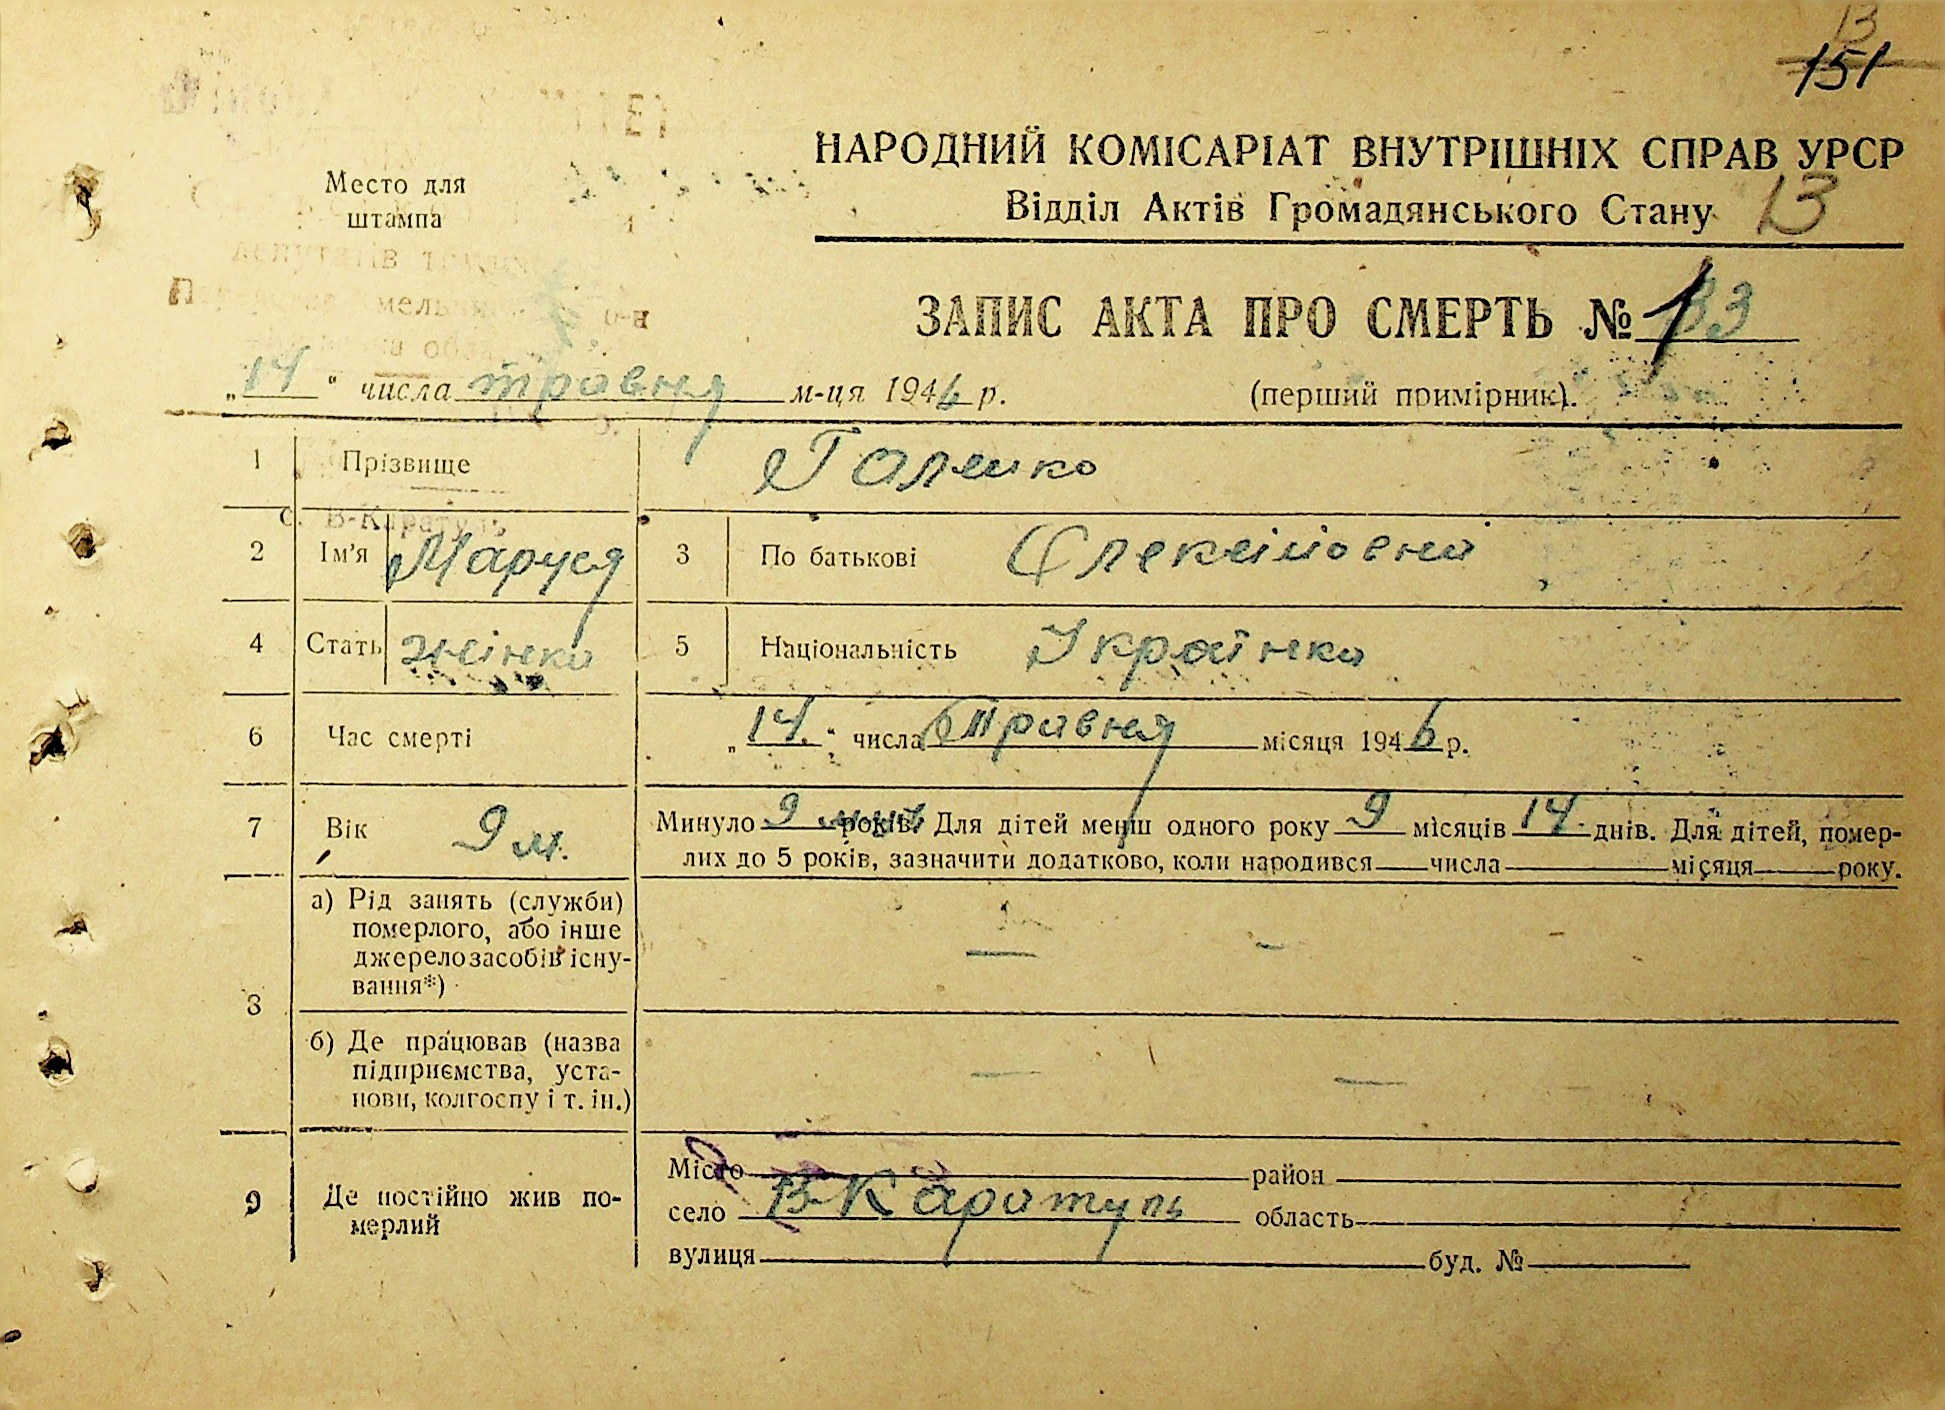 13
151
НАРОДНИЙ КОМІСАРІАТ ВНУТРІШНІХ СПРАВ УРСР
Відділ Актів Громадянського Стану 13
Место для
штампа
ЗАПИС АКТА ПРО СМЕРТЬ №
„14“ числа травня м-ця 1946 р.
(перший примірник).
1 Прізвище Галушко
2 Ім'я Маруся 3 По батькові Олексіївна
4 Стать жінка 5 Національність Українка
6 Час смерті „14.“ числа травня місяця 1946 р.
7 Вік 9 м. Минуло 9 років. Для дітей менш одного року 9 місяців 14 днів. Для дітей, помер-
лих до 5 років, зазначити додатково, коли народився — числа — місяця — року.
8 а) Рід занять (служби)
померлого, або інше
джерело засобів існу-
вання*)
— -
б) Де працював (назва
підприємства, уста-
нови, колгоспу і т. ін.)
— —
9 Де постійно жив по-
мерлий
Місто район
село В-Каратуль область
вулиця буд. №